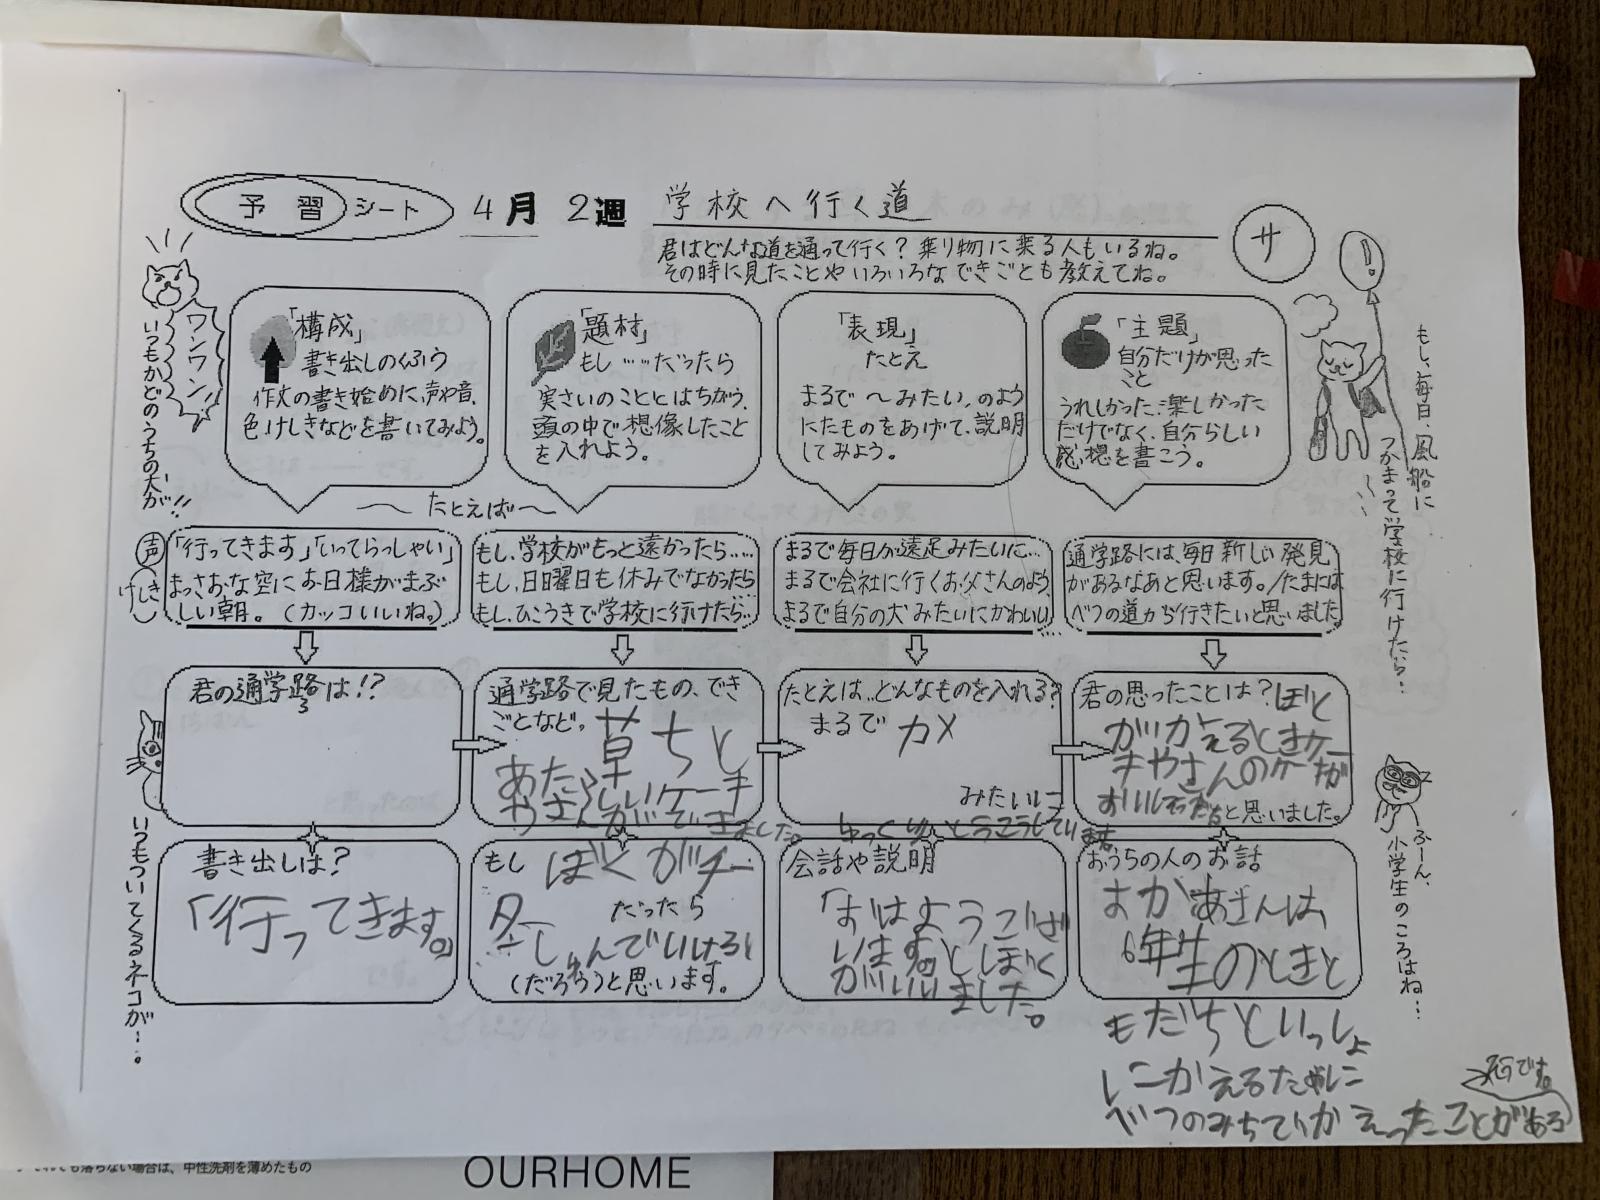 予習シート 4月 2週 学校へ行く道
君はどんな道を通って行く？乗り物に乗る人もいるね。
その時に見たことやいろいろなできごとも教えてね。
サ
ワンワン!
いつもかどのうちの犬が!!
「構成」
書き出しのくふう
作文の書き始めに、声や音、
色、けしきなどを書いてみよう。
「題材」
もし……だったら
実さいのこととはちがう、
頭の中で想像したこと
を入れよう。
「表現」
たとえ
まるで〜みたい、のよう
にたものをあげて、説明
してみよう。
「主題」
自分だけが思った
こと
うれしかった、楽しかった
だけでなく、自分らしい
感想を書こう。
!
もし、毎日、風船に
つかまって学校に行けたら…
〜たとえば〜
声
けしき
「行ってきます」「いってらっしゃい」
まっさおな空にお日様がまぶ
しい朝。(カッコいいね。)
もし、学校がもっと遠かったら……
もし、日曜日も休みでなかったら
もし、ひこうきで学校に行けたら…
まるで毎日が遠足みたいに…
まるで会社に行くお父さんのよう
まるで自分の犬みたいにかわいい…
通学路には、毎日新しい発見
があるなあと思います。/たまには
べつの道から行きたいと思いました。
君の通学路は!?
ろ
通学路で見たもの、でき
ごとなど。
草ちと
あたらしいケーキ
やさんができました。
たとえは…どんなものを入れる?
まるで
カメ
みたいに
ゆっくり
君の思ったことは?
ぼく
がかえるときケー
キやさんのケーキが
おいし
と思いました。
いつもついてくるネコが…。
書き出しは?
「行ってきます。」
もし
ぼくがチー
ター
だったら
(だろう)と思います。
会話や説明
「おはようござ
います。」とぼく
がいいました。
おうちの人のお話
おかあさんは、
6年生のときと
もだちといっしょ
にかえるために
べつのみちでかえったことがある
そうです。
ふーん、
小学生のころはね…
中性洗剤を薄めたもの
OURHOME